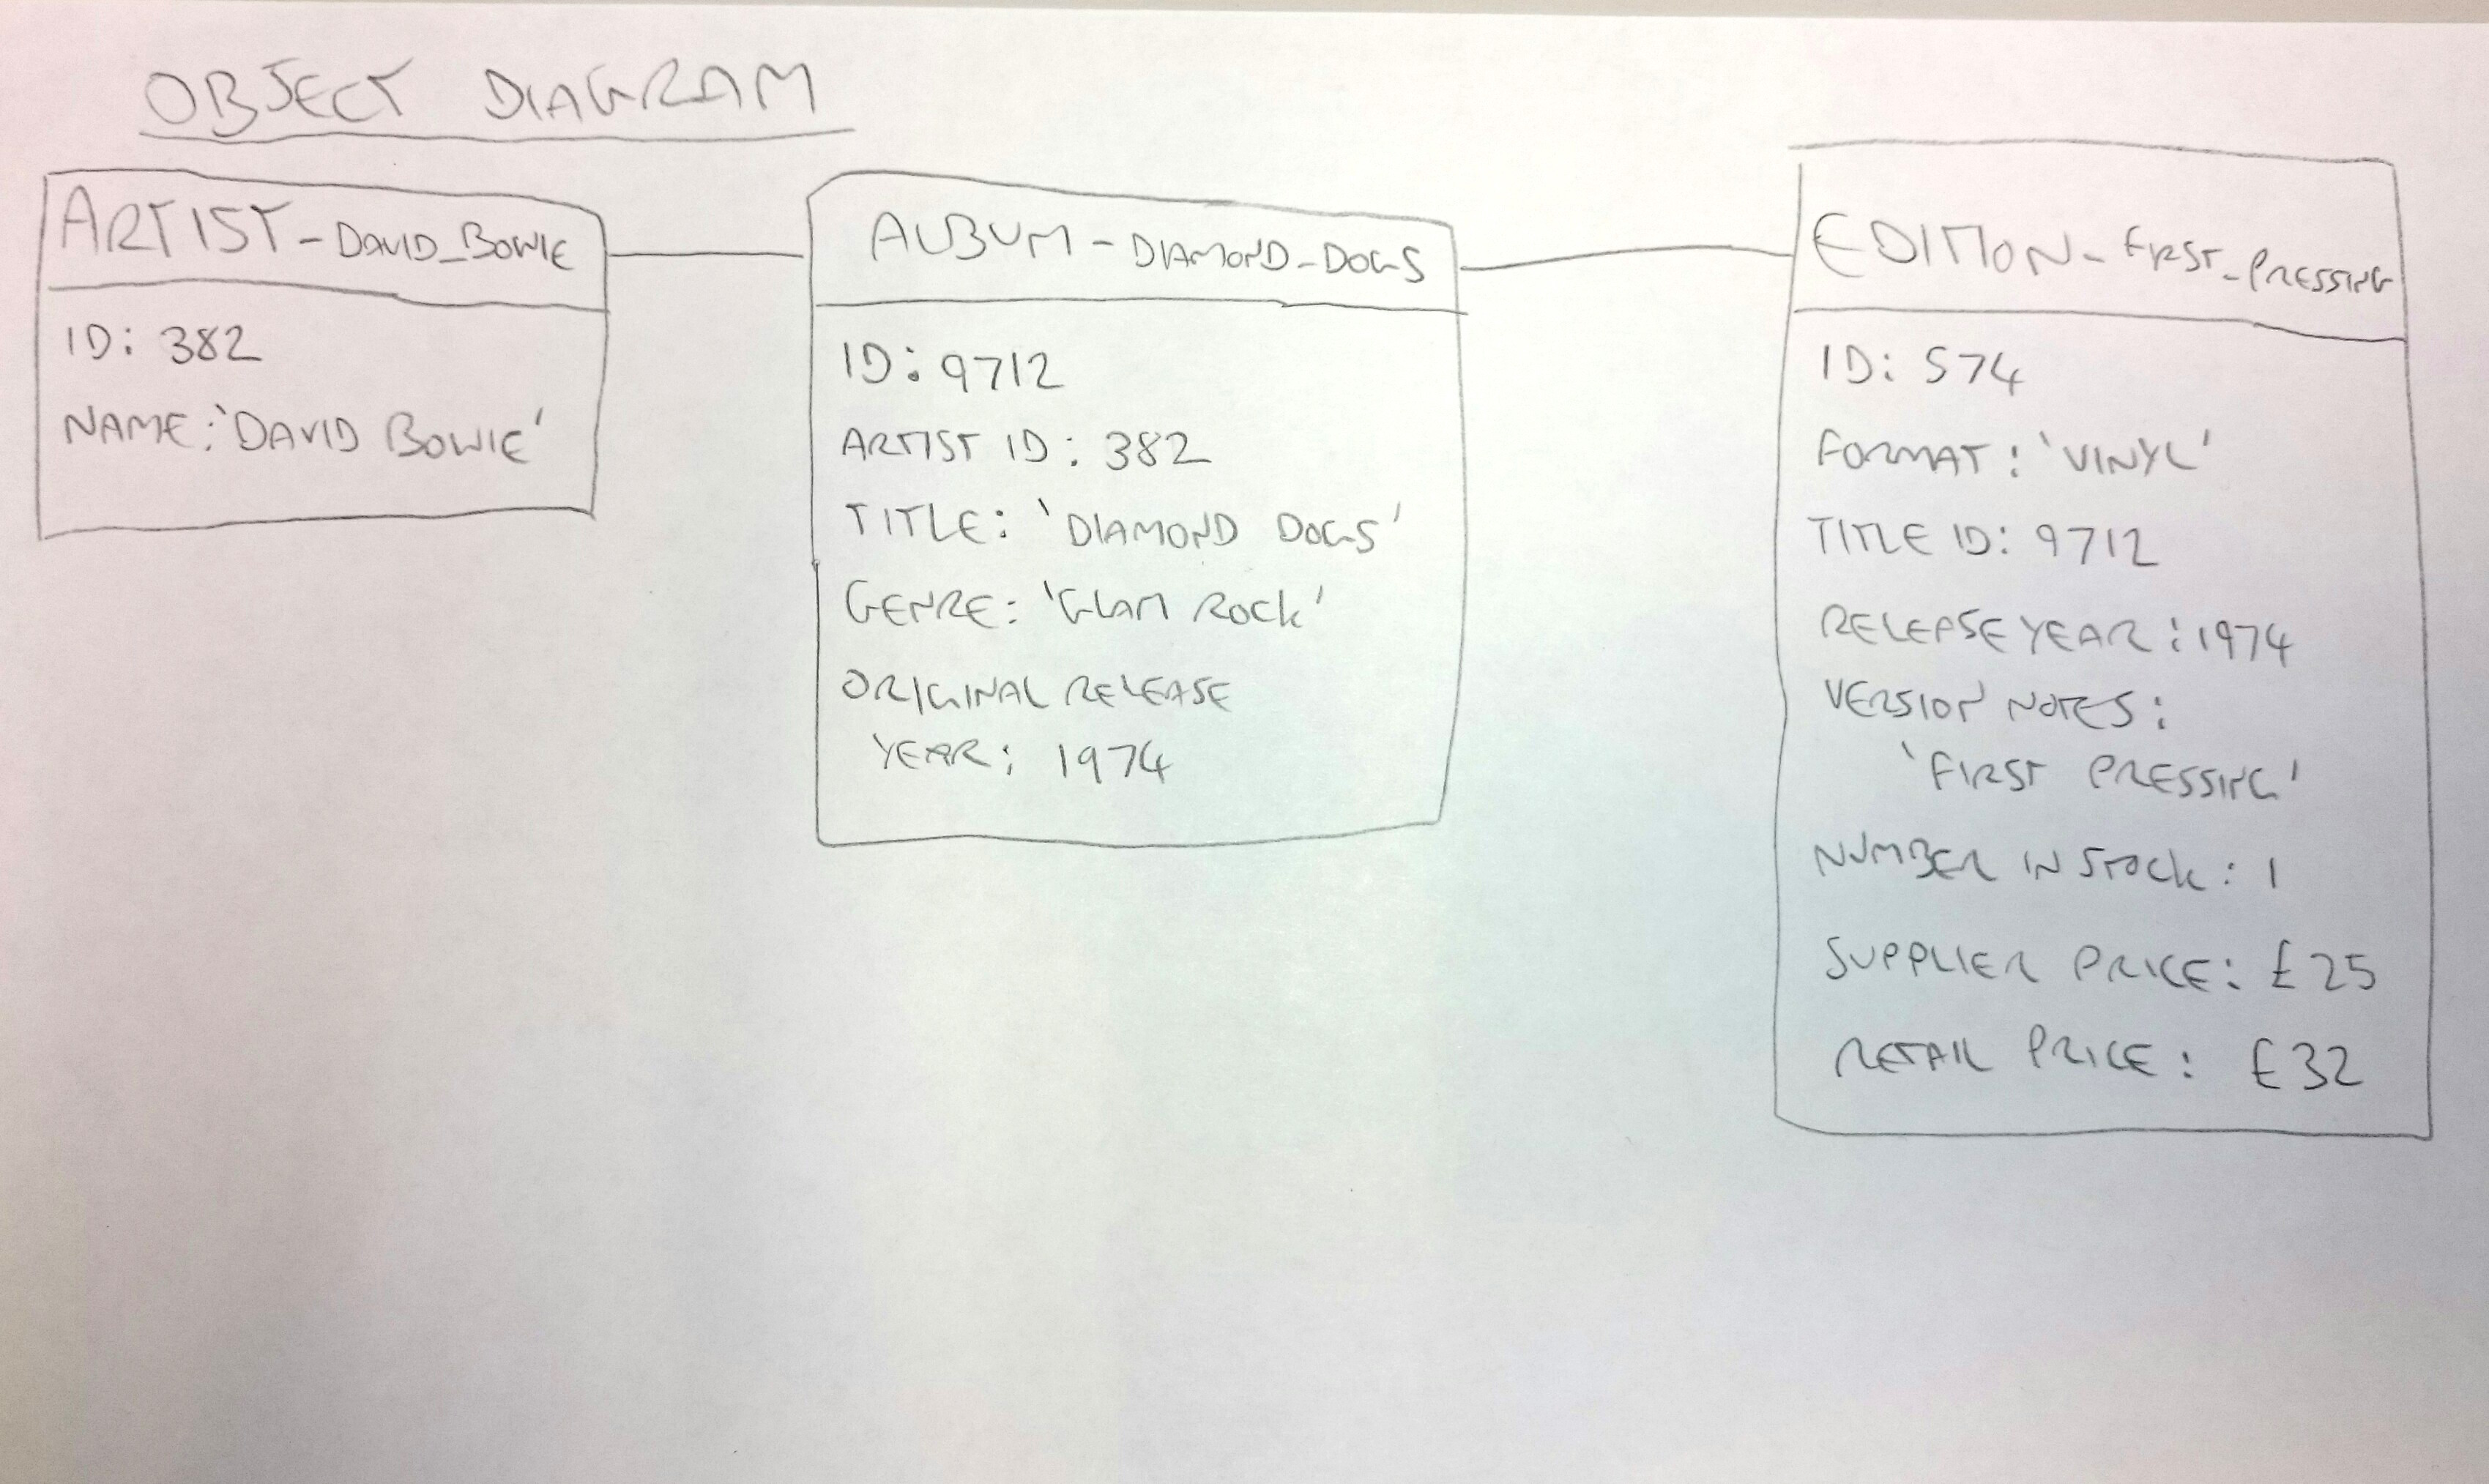 OBJECT DIAGRAM
ARTIST-DAVID_BOWIE
ID: 382
NAME: 'DAVID BOWIE'
ALBUM-DIAMOND_DOGS
ID: 9712
ARTIST ID: 382
TITLE: 'DIAMOND DOGS'
GENRE: 'GLAM ROCK'
ORIGINAL RELEASE
YEAR: 1974
EDITION-FIRST_PRESSING
ID: 574
FORMAT: 'VINYL'
TITLE ID: 9712
RELEASE YEAR: 1974
VERSION NOTES:
'FIRST PRESSING'
NUMBER IN STOCK: 1
SUPPLIER PRICE: £25
RETAIL PRICE: £32